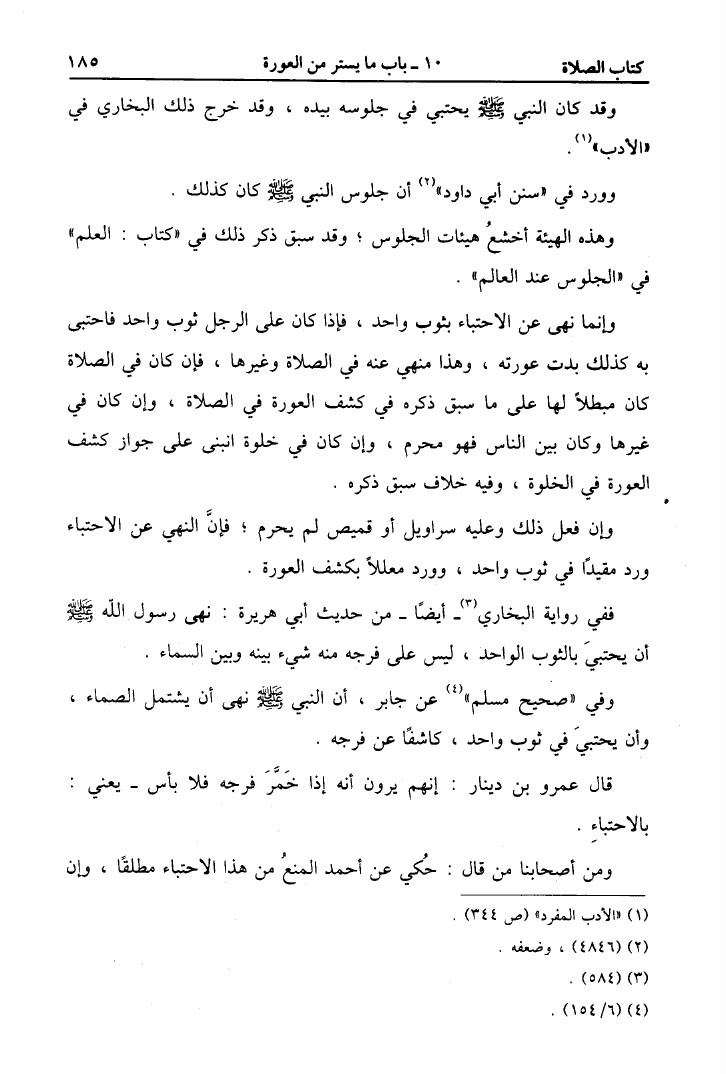 كتاب الصلاة ١٠ - باب ما يستر من العورة ١٨٥
وقد كان النبي ﷺ يحتبي في جلوسه بيده ، وقد خرج ذلك البخاري في
«الأدب»(١) .
وورد في «سنن أبي داود»(٢) أن جلوس النبي ﷺ كان كذلك .
وهذه الهيئة أخشعُ هيئات الجلوس ؛ وقد سبق ذكر ذلك في «كتاب : العلم»
في «الجلوس عند العالم» .
وإنما نهى عن الاحتباء بثوب واحد ، فإذا كان على الرجل ثوب واحد فاحتبى
به كذلك بدت عورته ، وهذا منهي عنه في الصلاة وغيرها ، فإن كان في الصلاة
كان مبطلاً لها على ما سبق ذكره في كشف العورة في الصلاة ، وإن كان في
غيرها وكان بين الناس فهو محرم ، وإن كان في خلوة انبنى على جواز كشف
العورة في الخلوة ، وفيه خلاف سبق ذكره .
وإن فعل ذلك وعليه سراويل أو قميص لم يحرم ؛ فإنَّ النهي عن الاحتباء
ورد مقيدًا في ثوب واحد ، وورد معللاً بكشف العورة .
ففي رواية البخاري(٣)ـ أيضًا ـ من حديث أبي هريرة : نهى رسول الله ﷺ
أن يحتبيَ بالثوب الواحد ، ليس على فرجه منه شيء بينه وبين السماء .
وفي «صحيح مسلم»(٤) عن جابر ، أن النبي ﷺ نهى أن يشتمل الصماء ،
وأن يحتبيَ في ثوب واحد ، كاشفًا عن فرجه .
قال عمرو بن دينار : إنهم يرون أنه إذا خَمَّرَ فرجه فلا بأس ـ يعني :
بالاحتباءِ .
ومن أصحابنا من قال : حُكي عن أحمد المنعُ من هذا الاحتباء مطلقًا ، وإن
(١) «الأدب المفرد» (ص ٣٤٤) .
(٢) (٤٨٤٦) ، وضعفه .
(٣) (٥٨٤) .
(٤) (٦/ ١٥٤) .